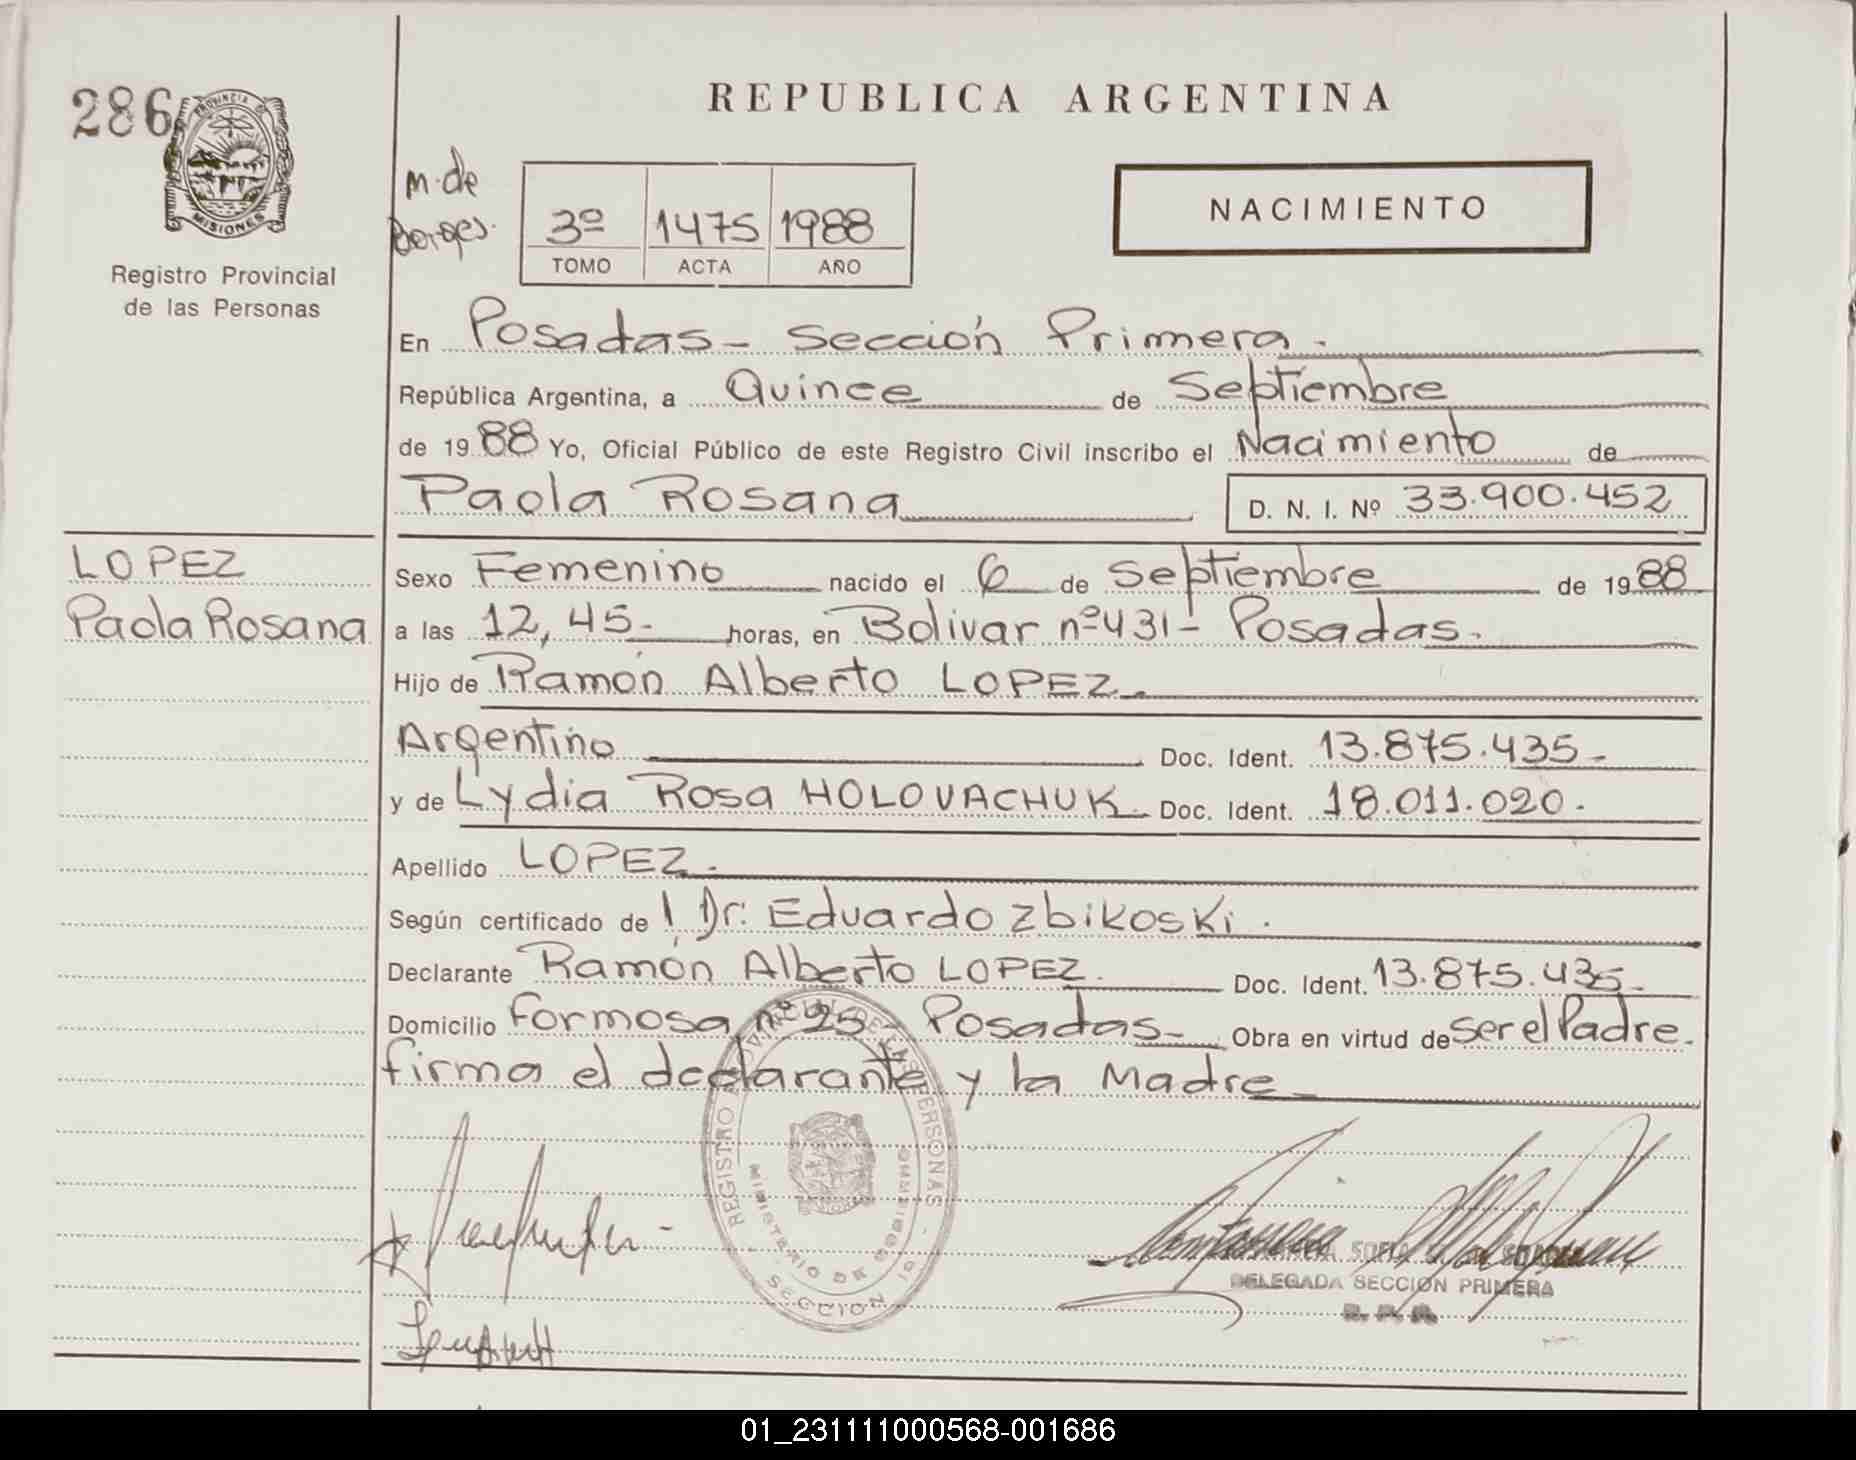 286
PROVINCIA DE
MISIONES
Registro Provincial
de las Personas
REPUBLICA ARGENTINA
m. de
Borges.
3º 1475 1988
TOMO ACTA AÑO
NACIMIENTO
En Posadas - Sección Primera.
República Argentina, a Quince de Septiembre
de 1988 Yo, Oficial Público de este Registro Civil inscribo el Nacimiento de
Paola Rosana D. N. I. Nº 33.900.452
LOPEZ
Paola Rosana
Sexo Femenino nacido el 6 de Septiembre de 1988
a las 12,45- horas, en Bolivar nº 431- Posadas.
Hijo de Ramón Alberto LOPEZ.
Argentino Doc. Ident. 13.875.435-
y de Lydia Rosa HOLOVACHUK. Doc. Ident. 18.011.020.
Apellido LOPEZ.
Según certificado de Dr: Eduardo Zbikoski.
Declarante Ramón Alberto LOPEZ. Doc. Ident. 13.875.435-
Domicilio Formosa nº 25- Posadas- Obra en virtud de ser el Padre.
firma el declarante y la Madre
REGISTRO PROVINCIAL DE LAS PERSONAS
MINISTERIO DE GOBIERNO
SECCION
SOFIA
DELEGADA SECCION PRIMERA
R. P. P.
01_231111000568-001686